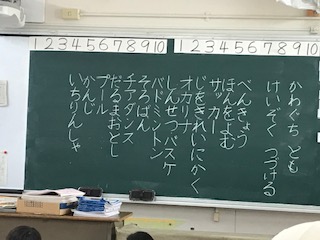 1 2 3 4 5 6 7 8 9 10
1 2 3 4 5 6 7 8 9 10
かわぐち とも
けいぞく つづける
べんきょう
ほんをよむ
サッカー
じをきれいにかく
オカリナ
しんせつ バスケ
バドミントン
そろばん
チアダンス
だるまおとし
プール
かんじ
いちりんしゃ